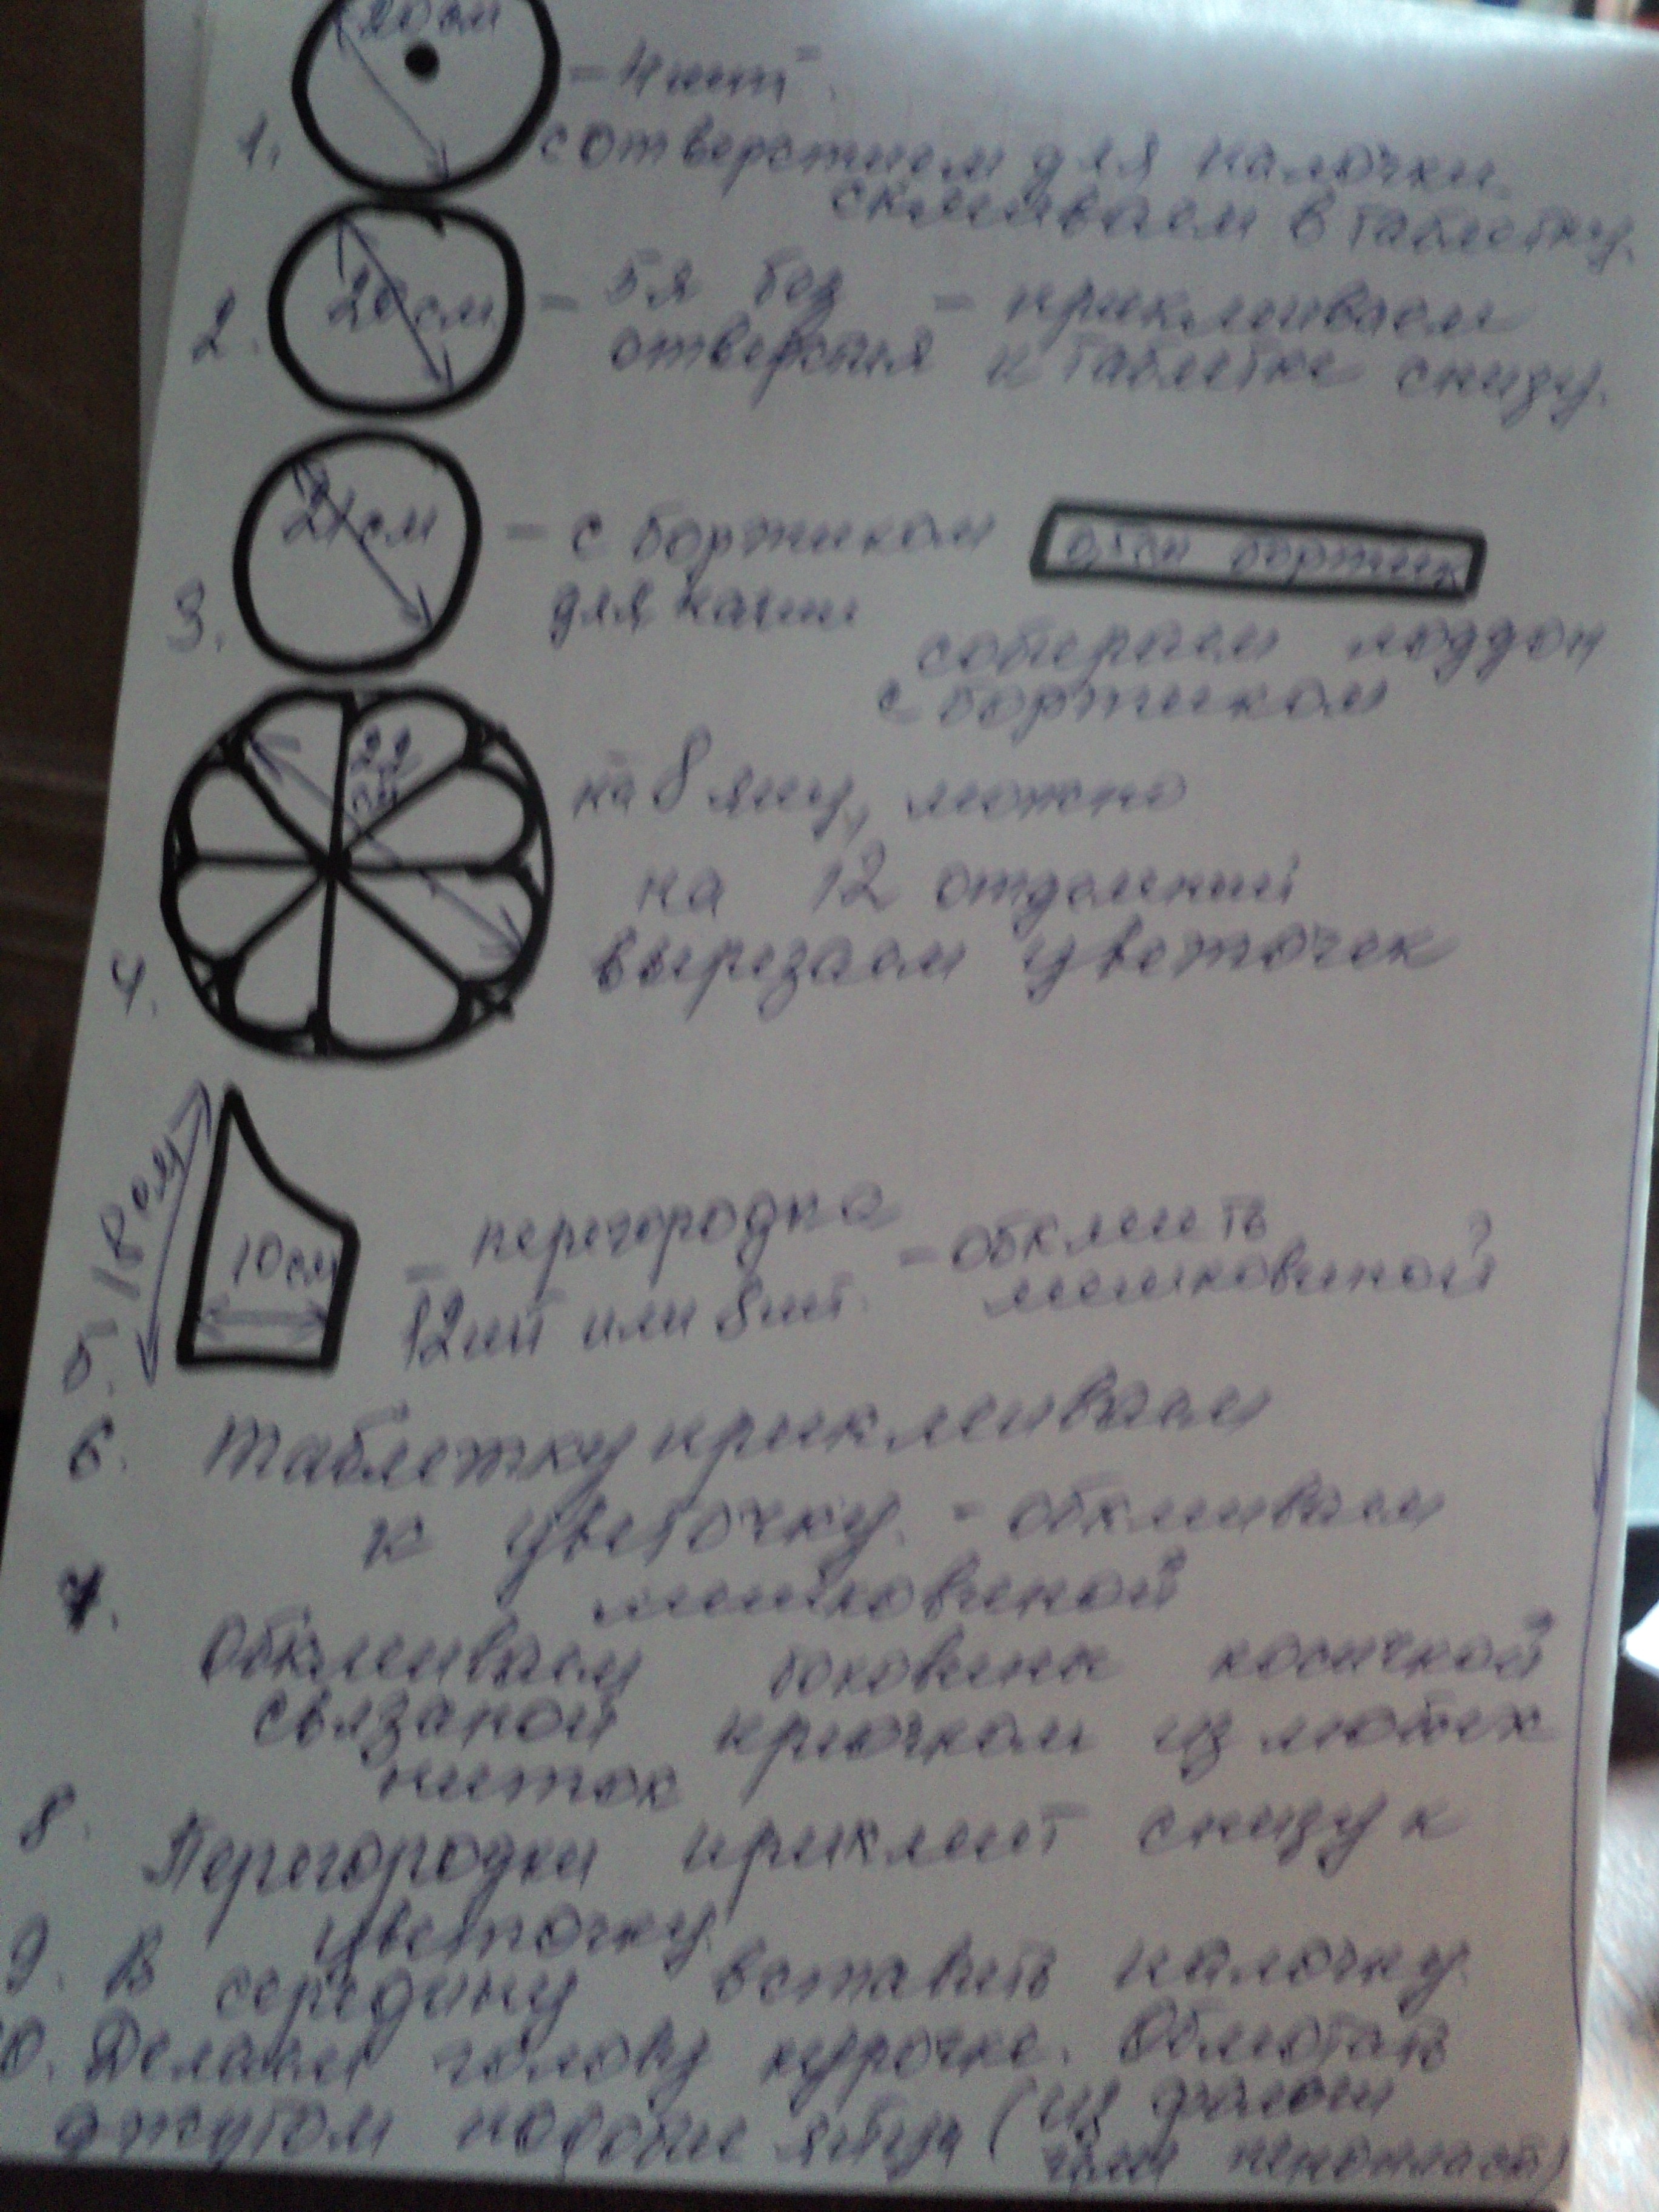 20 см
- 4 шт.
1. с отверстием для палочки
склеиваем в таблетку.
2. 20 см - 5я без - приклеиваем
отверстия к таблетке снизу.
21 см - с бортиком бортик
3. для каши
собираем поддон
с бортиком
22 см
на 8 яиц, можно
на 12 отделений
4. вырезаем цветочек
18 см
10 см
- перегородка - обклеить
5. 12 шт или 8 шт. мешковиной
6. Таблетку приклеиваем
к цветочку. - обклеиваем
мешковиной
7. Обклеиваем боковинки косичкой
связаной крючком из любых
ниток
8. Перегородки приклеит снизу к
цветочку
9. В середину вставить палочку.
10. Делаем голову курочке. Обмотать
джутом подобие яйца (из фольги
или пенопласт)